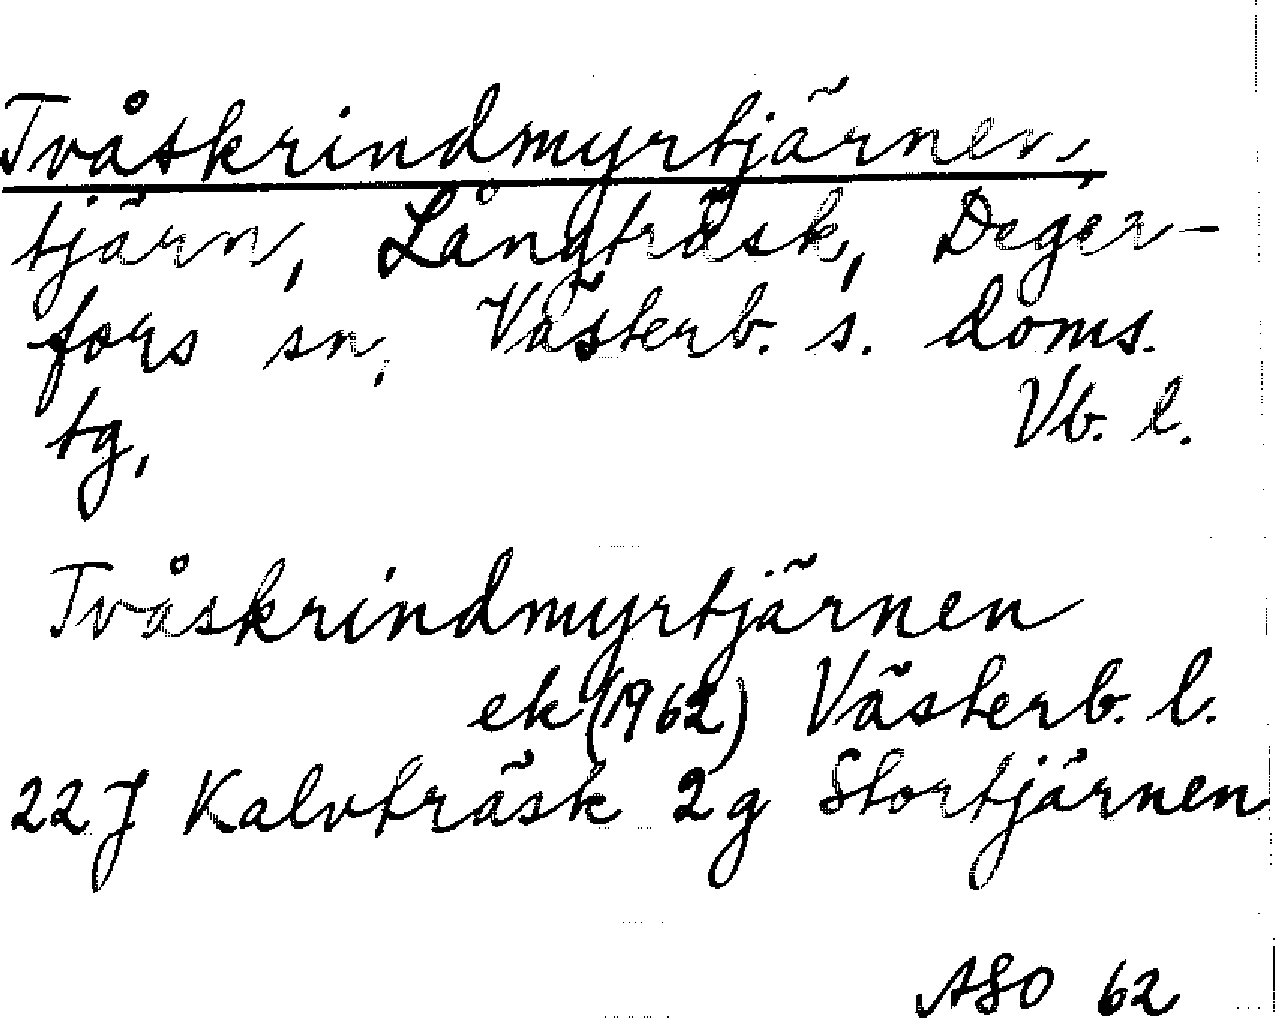 Tvåskrindmyrtjärnen,
tjärn, Långträsk, Deger-
fors sn, Västerb. s. doms.
tg, Vb. l.
Tvåskrindmyrtjärnen
ek (1962) Västerb. l.
22J Kalvträsk 2g Stortjärnen
ASO 62